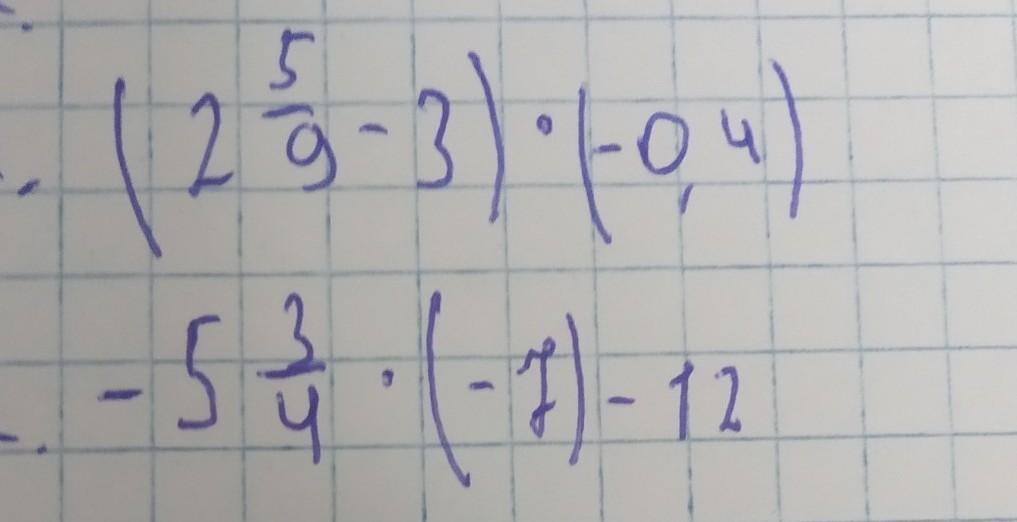 (2 5/9 - 3) · (-0,4)
-5 3/4 · (-7) - 12